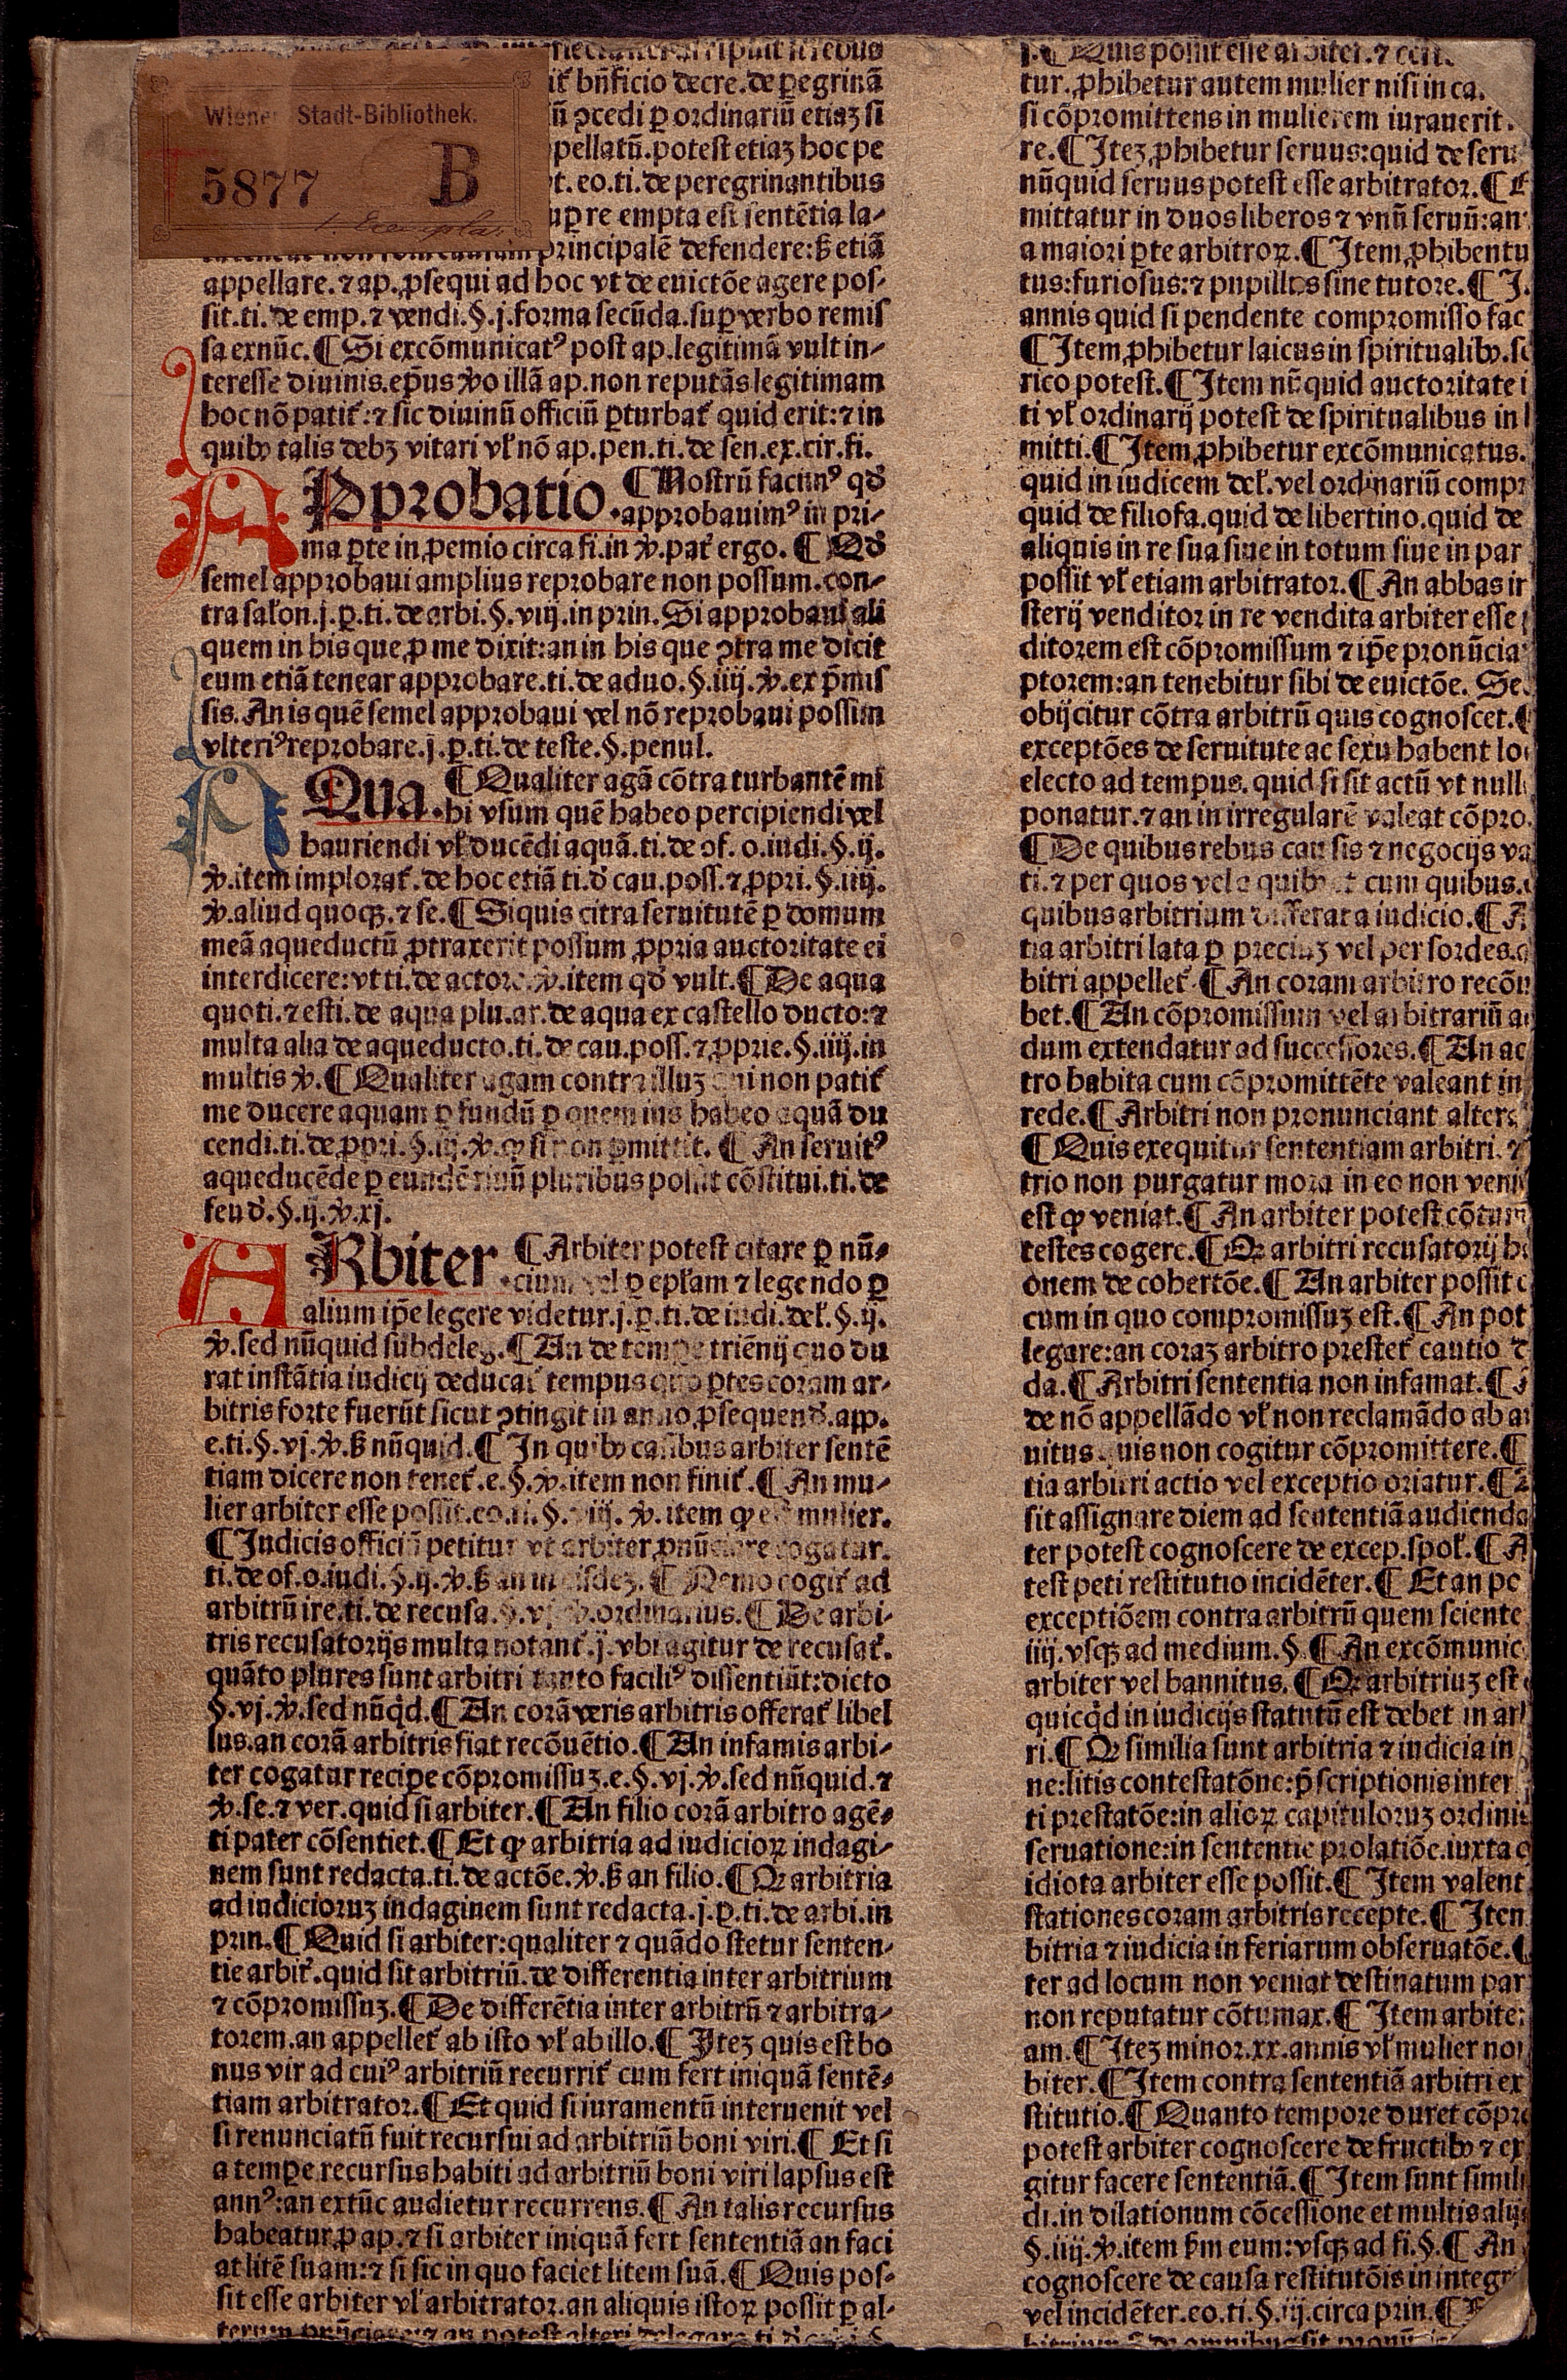 Wiener Stadt-Bibliothek.
5877 B
1. Exemplar
it᷑ bñficio decre. de ꝑegrinã
ũ ꝓcedi ꝑ ordinariũ etiaꝫ si
pellatũ. potest etiaꝫ hoc pe
t. eo. ti. de peregrinantibus
suꝑ re empta est sentẽtia la⸗
principalẽ defendere: ß etiã
appellare. ⁊ ap. ꝓsequi ad hoc vt de euictõe agere pos⸗
sit. ti. de emp. ⁊ vendi. §. j. forma secũda. suꝑ verbo remis
sa exnũc. ¶ Si excõmunicatꝰ post ap. legitimã vult in⸗
teresse diuinis. ep̃us ꝟo illã ap. non reputãs legitimam
hoc nõ patit᷑: ⁊ sic diuinũ officiũ ꝑturbat᷑ quid erit: ⁊ in
quibꝰ talis debꝫ vitari vl᷑ nõ ap. pen. ti. de sen. ex. cir. fi.
APprobatio. ¶ Nostrũ facimꝰ qđ
approbauimꝰ in pri⸗
ma ꝑte in ꝓemio circa fi. in ꝟ. pat᷑ ergo. ¶ Qđ
semel approbaui amplius reprobare non possum. con⸗
tra salon. j. ꝑ. ti. de arbi. §. viij. in prin. Si approbaui ali
quem in his que ꝓ me dixit: an in his que ꝯtra me dicit
eum etiã tenear approbare. ti. de aduo. §. iiij. ꝟ. ex p̃mis
sis. An is quẽ semel approbaui vel nõ reprobaui possim
vlteriꝰ reprobare. j. ꝑ. ti. de teste. §. penul.
AQua. ¶ Qualiter agã cõtra turbantẽ mi
hi vsum quẽ habeo percipiendi vel
hauriendi vl᷑ ducẽdi aquã. ti. de of. o. iudi. §. ij.
ꝟ. item implorat᷑. de hoc etiã ti. đ cau. poss. ⁊ ꝓpri. §. iiij.
ꝟ. aliud quoqꝫ. ⁊ se. ¶ Siquis citra seruitutẽ ꝑ domum
meã aqueductũ ꝓtraxerit possum ꝓpria auctoritate ei
interdicere: vt ti. de actore. ꝟ. item qđ vult. ¶ De aqua
quoti. ⁊ esti. de aqua plu. ar. de aqua ex castello ducto: ⁊
multa alia de aqueducto. ti. de cau. poss. ⁊ ꝓprie. §. iiij. in
multis ꝟ. ¶ Qualiter agam contra illuꝫ qui non patit᷑
me ducere aquam ꝑ fundũ ꝑ quem ius habeo aquã du
cendi. ti. de ꝓpri. §. iij. ꝟ. ꝙ si non ꝑmittit. ¶ An seruitꝰ
aqueducẽde ꝑ eundẽ riuũ pluribus possit cõstitui. ti. de
feuđ. §. ij. ꝟ. xj.
ARbiter. ¶ Arbiter potest citare ꝑ nũ⸗
cium vel ꝑ epl᷑am ⁊ legendo ꝑ
alium ip̃e legere videtur. j. ꝑ. ti. de iudi. del᷑. §. ij.
ꝟ. sed nũquid subdeleg. ¶ An de tempe triẽnij quo du
rat instãtia iudicij deducat᷑ tempus quo ꝑtes coram ar⸗
bitris forte fuerũt sicut ꝯtingit in anno ꝓsequenđ. app.
e. ti. §. vj. ꝟ. ß nũquid. ¶ In quibꝰ casibus arbiter sentẽ
tiam dicere non tenet᷑. e. §. ꝟ. item non finit᷑. ¶ An mu⸗
lier arbiter esse possit. eo. ti. §. ꝟ. item ꝙ mulier.
¶ Iudicis officiũ petitur vt arbiter ꝓnũciare cogatur.
ti. de of. o. iudi. §. ij. ꝟ. ß an ¶ Nemo cogit᷑ ad
arbitrũ ire. ti. de recusa. §. vj. ꝟ. ordinarius. ¶ De arbi⸗
tris recusatorijs multa notant᷑. j. vbi agitur de recusat᷑.
quãto plures sunt arbitri tanto faciliꝰ dissentiũt: dicto
§. vj. ꝟ. sed nũq̃d. ¶ An corã veris arbitris offerat᷑ libel
lus. an corã arbitris fiat recõuẽtio. ¶ An infamis arbi⸗
ter cogatur recipe cõpromissuꝫ. e. §. vj. ꝟ. sed nũquid. ⁊
ꝟ. se. ⁊ ver. quid si arbiter. ¶ An filio corã arbitro agẽ⸗
ti pater cõsentiet. ¶ Et ꝙ arbitria ad iudicioꝝ indagi⸗
nem sunt redacta. ti. de actõe. ꝟ. ß an filio. ¶ Qꝛ arbitria
ad iudicioruꝫ indaginem sunt redacta. j. ꝑ. ti. de arbi. in
prin. ¶ Quid si arbiter: qualiter ⁊ quãdo stetur senten⸗
tie arbit᷑. quid sit arbitriũ. de differentia inter arbitrium
⁊ cõpromissuꝫ. ¶ De differẽtia inter arbitrũ ⁊ arbitra⸗
torem. an appellet᷑ ab isto vl᷑ ab illo. ¶ Iteꝫ quis est bo
nus vir ad cuiꝰ arbitriũ recurrit᷑ cum fert iniquã sentẽ⸗
tiam arbitrator. ¶ Et quid si iuramentũ interuenit vel
si renunciatũ fuit recursui ad arbitriũ boni viri. ¶ Et si
a tempe recursus habiti ad arbitriũ boni viri lapsus est
annꝰ: an extũc audietur recurrens. ¶ An talis recursus
habeatur ꝓ ap. ⁊ si arbiter iniquã fert sententiã an faci
at litẽ suam: ⁊ si sic in quo faciet litem suã. ¶ Quis pos⸗
sit esse arbiter vl᷑ arbitrator. an aliquis istoꝝ possit ꝑ al⸗
¶ Quis possit esse arbiter. ⁊
tur. ꝓhibetur autem mulier nisi in ca.
si cõpromittens in mulierem iurauerit.
re. ¶ Iteꝫ ꝓhibetur seruus: quid de seru
nũquid seruus potest esse arbitrator. ¶
mittatur in duos liberos ⁊ vnũ seruũ: an
a maiori ꝑte arbitroꝝ. ¶ Item ꝓhibentu
tus: furiosus: ⁊ pupillus sine tutore. ¶ I
annis quid si pendente compromisso fac
¶ Item ꝓhibetur laicus in spiritualibꝰ. se
rico potest. ¶ Item nũquid auctoritate
ti vl᷑ ordinarij potest de spiritualibus in
mitti. ¶ Item ꝓhibetur excõmunicatus.
quid in iudicem del᷑. vel ordinariũ compr
quid de filiofa. quid de libertino. quid de
aliquis in re sua siue in totum siue in par
possit vl᷑ etiam arbitrator. ¶ An abbas
sterij venditor in re vendita arbiter esse
ditorem est cõpromissum ⁊ ip̃e pronũcia
ptorem: an tenebitur sibi de euictõe. Se
obijcitur cõtra arbitrũ quis cognoscet. ¶
exceptões de seruitute ac sexu habent lo
electo ad tempus. quid si sit actũ vt null
ponatur. ⁊ an in irregularẽ valeat cõpro.
¶ De quibus rebus causis ⁊ negocijs va
ti. ⁊ per quos vel a quibꝰ et cum quibus.
quibus arbitrium differat a iudicio. ¶ A
tia arbitri lata ꝑ preciuꝫ vel per sordes.
bitri appellet᷑. ¶ An coram arbitro recõu
bet. ¶ An cõpromissum vel arbitrariũ
dum extendatur ad successores. ¶ An ac
tro habita cum cõpromittẽte valeant in
rede. ¶ Arbitri non pronunciant alter
¶ Quis exequitur sententiam arbitri. ⁊
trio non purgatur mora in eo non veni
est ꝙ veniat. ¶ An arbiter potest cõtum
testes cogere. ¶ Qꝛ arbitri recusatorij
onem de cohertõe. ¶ An arbiter possit
cum in quo compromissuꝫ est. ¶ An pot
legare: an coraꝫ arbitro prestet᷑ cautio
da. ¶ Arbitri sententia non infamat. ¶
de nõ appellãdo vl᷑ non reclamãdo ab
nitus quis non cogitur cõpromittere. ¶
tia arbitri actio vel exceptio oriatur. ¶
sit assignare diem ad sententiã audienda
ter potest cognoscere de excep. spol᷑. ¶
test peti restitutio incidẽter. ¶ Et an po
exceptiõem contra arbitrũ quem sciente
iiij. vsqꝫ ad medium. §. ¶ An excõmunic
arbiter vel bannitus. ¶ Qꝛ arbitriuꝫ est
quicq̃d in iudicijs statutũ est debet in ar
ri. ¶ Qꝛ similia sunt arbitria ⁊ iudicia in
ne: litis contestatõne: p̃scriptionis inter
ti prestatõe: in alioꝝ capituloruꝫ ordini
seruatione: in sententie prolatiõe. iuxta
idiota arbiter esse possit. ¶ Item valent
stationes coram arbitris recepte. ¶ Iten
bitria ⁊ iudicia in feriarum obseruatõe. ¶
ter ad locum non veniat destinatum par
non reputatur cõtumax. ¶ Item arbite
am. ¶ Iteꝫ minor. xx. annis vl᷑ mulier
biter. ¶ Item contra sententiã arbitri ex
stitutio. ¶ Quanto tempore duret cõpro
potest arbiter cognoscere de fructibꝰ ⁊ ex
gitur facere sententiã. ¶ Item sunt simili
di. in dilationum cõcessione et multis alij
§. iiij. ꝟ. item ẜm eum: vsqꝫ ad fi. §. ¶ An
cognoscere de causa restitutõis in integr
vel incidẽter. eo. ti. §. iij. circa prin. ¶